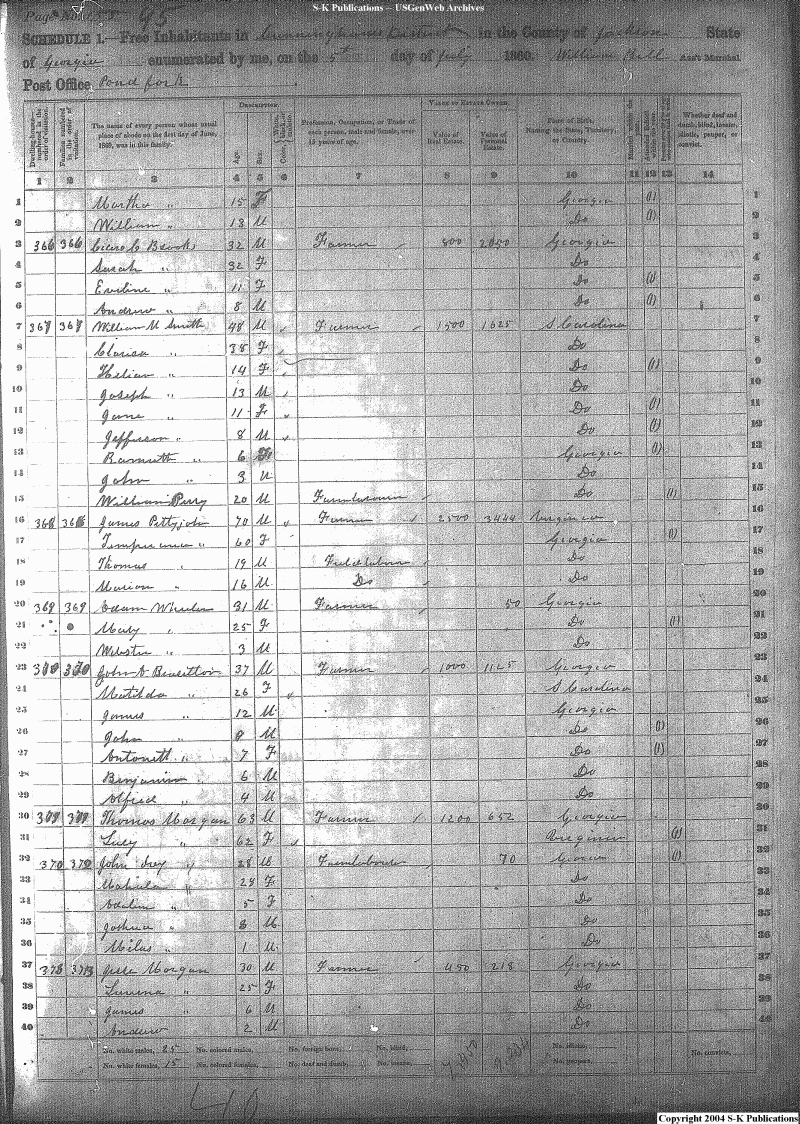 S-K Publications -- USGenWeb Archives
Page No. 95
SCHEDULE 1.—Free Inhabitants in Cunningham District in the County of Jackson State
of Georgia enumerated by me, on the 5th day of July 1860. William Bell Ass't Marshal
Post Office Pond fork
DESCRIPTION. VALUE OF ESTATE OWNED.
Dwelling-houses—numbered in the order of visitation. Families numbered in the order of visitation. The name of every person whose usual place of abode on the first day of June, 1860, was in this family. Age. Sex. Color, White, black, or mulatto. Profession, Occupation, or Trade of each person, male and female, over 15 years of age. Value of Real Estate. Value of Personal Estate. Place of Birth, Naming the State, Territory, or Country. Whether deaf and dumb, blind, insane, idiotic, pauper, or convict.
1 2 3 4 5 6 7 8 9 10 11 12 13 14
1 Martha " 15 F Georgia (1) 1
2 William " 13 M Do (1) 2
3 366 366 Cicero C Brooks 32 M Farmer 800 2050 Georgia 3
4 Sarah " 32 F Do 4
5 Eveline " 11 F Do (1) 5
6 Andrew " 8 M Do (1) 6
7 367 367 William M Smith 48 M Farmer 1500 1625 S Carolina 7
8 Clarisa " 38 F Do 8
9 " 14 F Do (1) 9
10 Joseph " 13 M Do 10
11 Jane " 11 F Do (1) 11
12 Jefferson " 8 M Do (1) 12
13 " 6 Georgia (1) 13
14 John " 3 M Do 14
15 William Perry 20 M Farmlaborer Do (1) 15
16 368 368 James Pettyjohn 70 M Farmer 2500 3444 Virginia 16
17 Temperance " 60 F Georgia (1) 17
18 Thomas " 19 M Field laborer Do 18
19 Marion " 16 M Do Do 19
20 369 369 Adam Wheeler 31 M Farmer 50 Georgia 20
21 Mary " 25 F Do (1) 21
22 Webster " 3 M Do 22
23 370 370 John A 37 M Farmer 1000 1125 Georgia 23
24 Matilda " 26 F S Carolina 24
25 James " 12 M Georgia 25
26 John " 9 M Do (1) 26
27 Antonett " 7 F Do (1) 27
28 Benjamin " 6 M Do 28
29 Alfred " 4 M Do 29
30 Thomas Morgan 63 M Farmer 1200 652 Georgia 30
31 Lucy " 62 F Virginia (1) 31
32 John " 28 M Farmlaborer 70 Georgia (1) 32
33 " 24 F Do 33
34 Adalin " 5 F Do 34
35 Joshua " 3 M Do 35
36 Milas " 1 M Do 36
37 373 Jesse Morgan 30 M Farmer 450 218 Georgia 37
38 Lurena " 25 F Do 38
39 James " 6 M Do 39
40 Andrew 2 M Do 40
No. white males, 25 No. colored males, No. foreign born, No. blind, No. idiotic,
No. white females, 15 No. colored females, No. deaf and dumb, No. insane, No. paupers, No. convicts,
40
Copyright 2004 S-K Publications